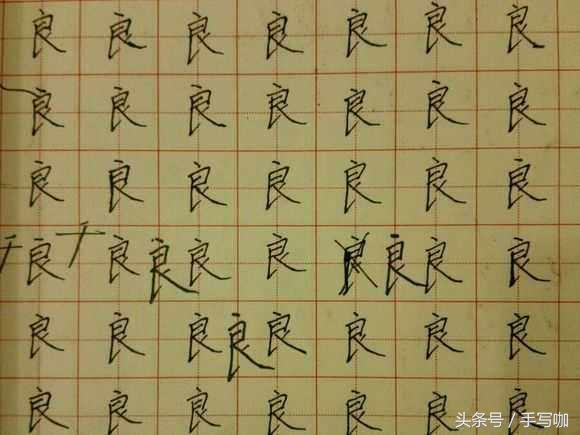 良良良良良良良
良良良良良良良
良良良良良良良
千良千良良良良良良良良
良良良良良良良良
良良良良良良良
头条号 / 手写咖